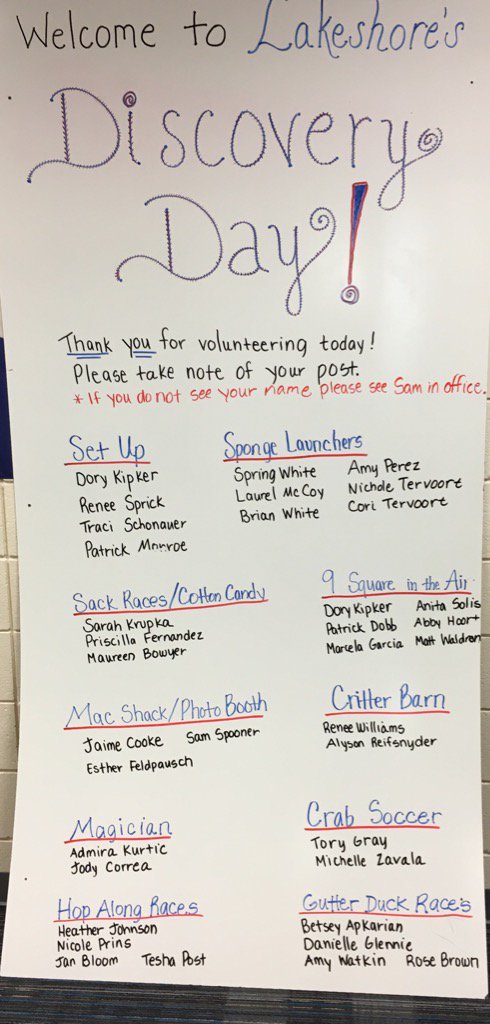 Welcome to Lakeshore's
Discovery
Day!
Thank you for volunteering today!
Please take note of your post.
* If you do not see your name please see Sam in office.
Set Up
Dory Kipker
Renee Sprick
Traci Schonauer
Patrick Monroe
Sponge Launchers
Spring White
Laurel McCoy
Brian White
Amy Perez
Nichole Tervoort
Cori Tervoort
Sack Races/Cotton Candy
Sarah Krupka
Priscilla Fernandez
Maureen Bowyer
9 Square in the Air
Dory Kipker
Patrick Dobb
Marcela Garcia
Anita Solis
Abby Hoort
Matt Waldron
Mac Shack/Photo Booth
Jaime Cooke Sam Spooner
Esther Feldpausch
Critter Barn
Renee Williams
Alyson Reifsnyder
Magician
Admira Kurtic
Jody Correa
Crab Soccer
Tory Gray
Michelle Zavala
Hop Along Races
Heather Johnson
Nicole Prins
Jan Bloom Tesha Post
Gutter Duck Races
Betsey Apkarian
Danielle Glennie
Amy Watkin Rose Brown